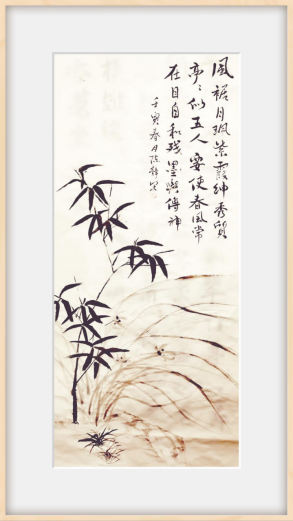 風裾月珮紫霞紳秀質
亭〻似玉人要使春風常
在目自和残墨與傳神
壬寅春月